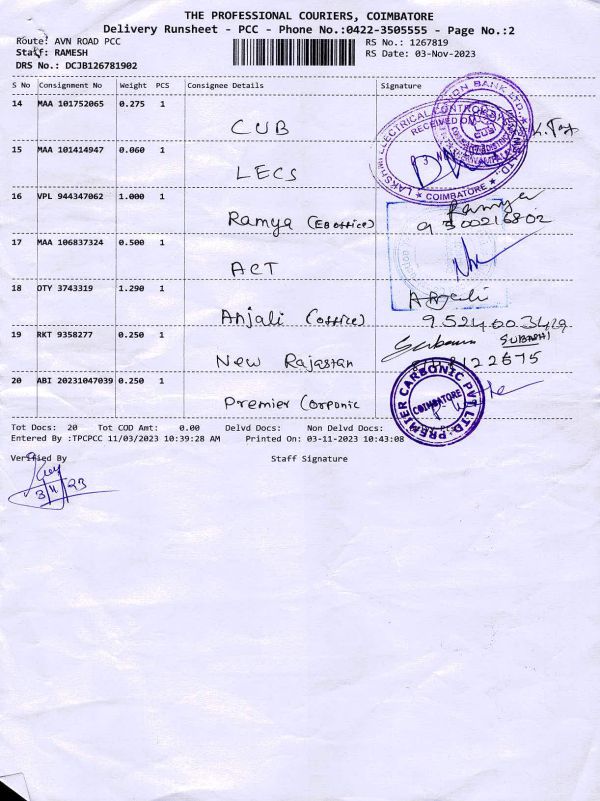 THE PROFESSIONAL COURIERS, COIMBATORE
Delivery Runsheet - PCC - Phone No.:0422-3505555 - Page No.:2
Route: AVN ROAD PCC
RS No.: 1267819
Staff: RAMESH
RS Date: 03-Nov-2023
DRS No.: DCJB126781902
S No Consignment No Weight PCS Consignee Details Signature
14 MAA 101752065 0.275 1
CUB
15 MAA 101414947 0.060 1
LECS
RECEIVED ON
COIMBATORE
16 VPL 944347062 1.000 1
Ramya (EB office)
Ramya
17 MAA 106837324 0.500 1
ACT
18 OTY 3743319 1.290 1
Anjali (office)
Anjali
9524003429
19 RKT 9358277 0.250 1
New Rajastan
SUBASHI
20 ABI 20231047039 0.250 1
Premier Corponic
PREMIER CARBONIC PVT LTD
COIMBATORE
Tot Docs: 20 Tot COD Amt: 0.00 Delvd Docs: Non Delvd Docs:
Entered By :TPCPCC 11/03/2023 10:39:28 AM Printed On: 03-11-2023 10:43:08
Verified By Staff Signature
3/11/23